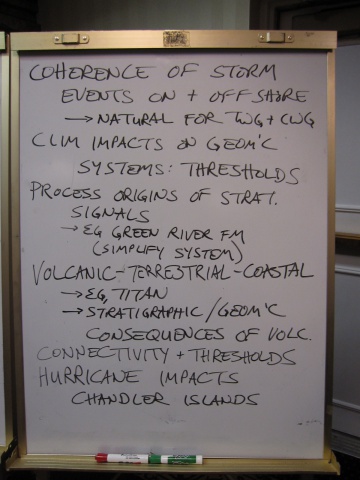 COHERENCE OF STORM
EVENTS ON + OFFSHORE
→ NATURAL FOR TWG + CWG
CLIM IMPACTS ON GEOM'C
SYSTEMS: THRESHOLDS
PROCESS ORIGINS OF STRAT.
SIGNALS
→ EG GREEN RIVER FM
(SIMPLIFY SYSTEM)
VOLCANIC-TERRESTRIAL-COASTAL
→ EG, TITAN
→ STRATIGRAPHIC/GEOM'C
CONSEQUENCES OF VOLC.
CONNECTIVITY + THRESHOLDS
HURRICANE IMPACTS
CHANDLER ISLANDS